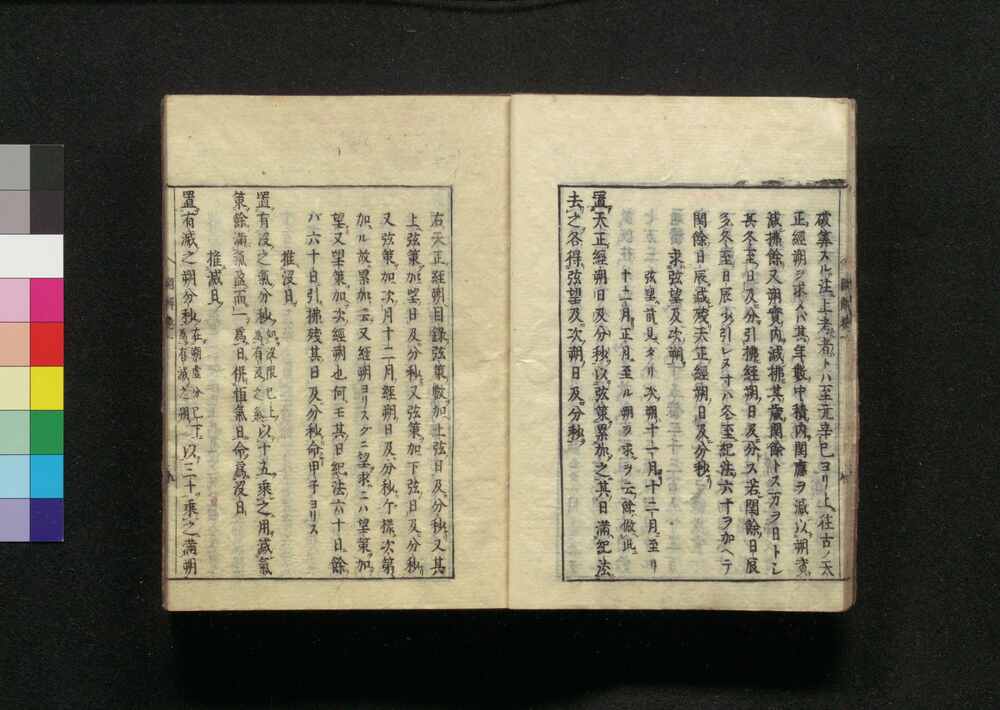 破筭スル注上考者トハ至元辛巳ヨリ上往古ノ天
正經朔ヲ求ハ其年數中積内閏應ヲ減以朔實
減捨餘又朔實内減拂其歳閏餘トス万ヲ日トシ
其冬至日及分引攘經朔日及分ス若閏餘日辰
多冬至日辰少引レスナハ冬至紀法六十ヲ加ヘテ
閏餘日辰減残天正經朔日及分秒
求弦望及次朔
弦望前見タリ次朔十一月十二月至リ
十二月正月至ル朔ヲ求ヲ云餘倣此
置天正經朔日及分秒以弦策累加之其日滿紀法
去之各得弦望及次朔日及分秒
右天正經朔目錄弦策數加上弦日及分秒又其
上弦策加望日及分秒又弦策加下弦日及分秒
又弦策加次月十二月經朔日及分秒ケ樣次第
加ル故累加云又經朔ヨリスクニ望求ニハ望策加
望又望策加次經朔也何モ其日紀法六十日餘
バ六十日引拂残其日及分秒命甲子ヨリス
推沒日
置有沒之氣分秒如沒限已上爲有沒之氣以十五乘之用減氣
策餘滿氣盈而一爲日併恒氣日命爲沒日
推滅日
置有滅之朔分秒在朔虛分已下爲有滅之朔以三十乘之滿朔